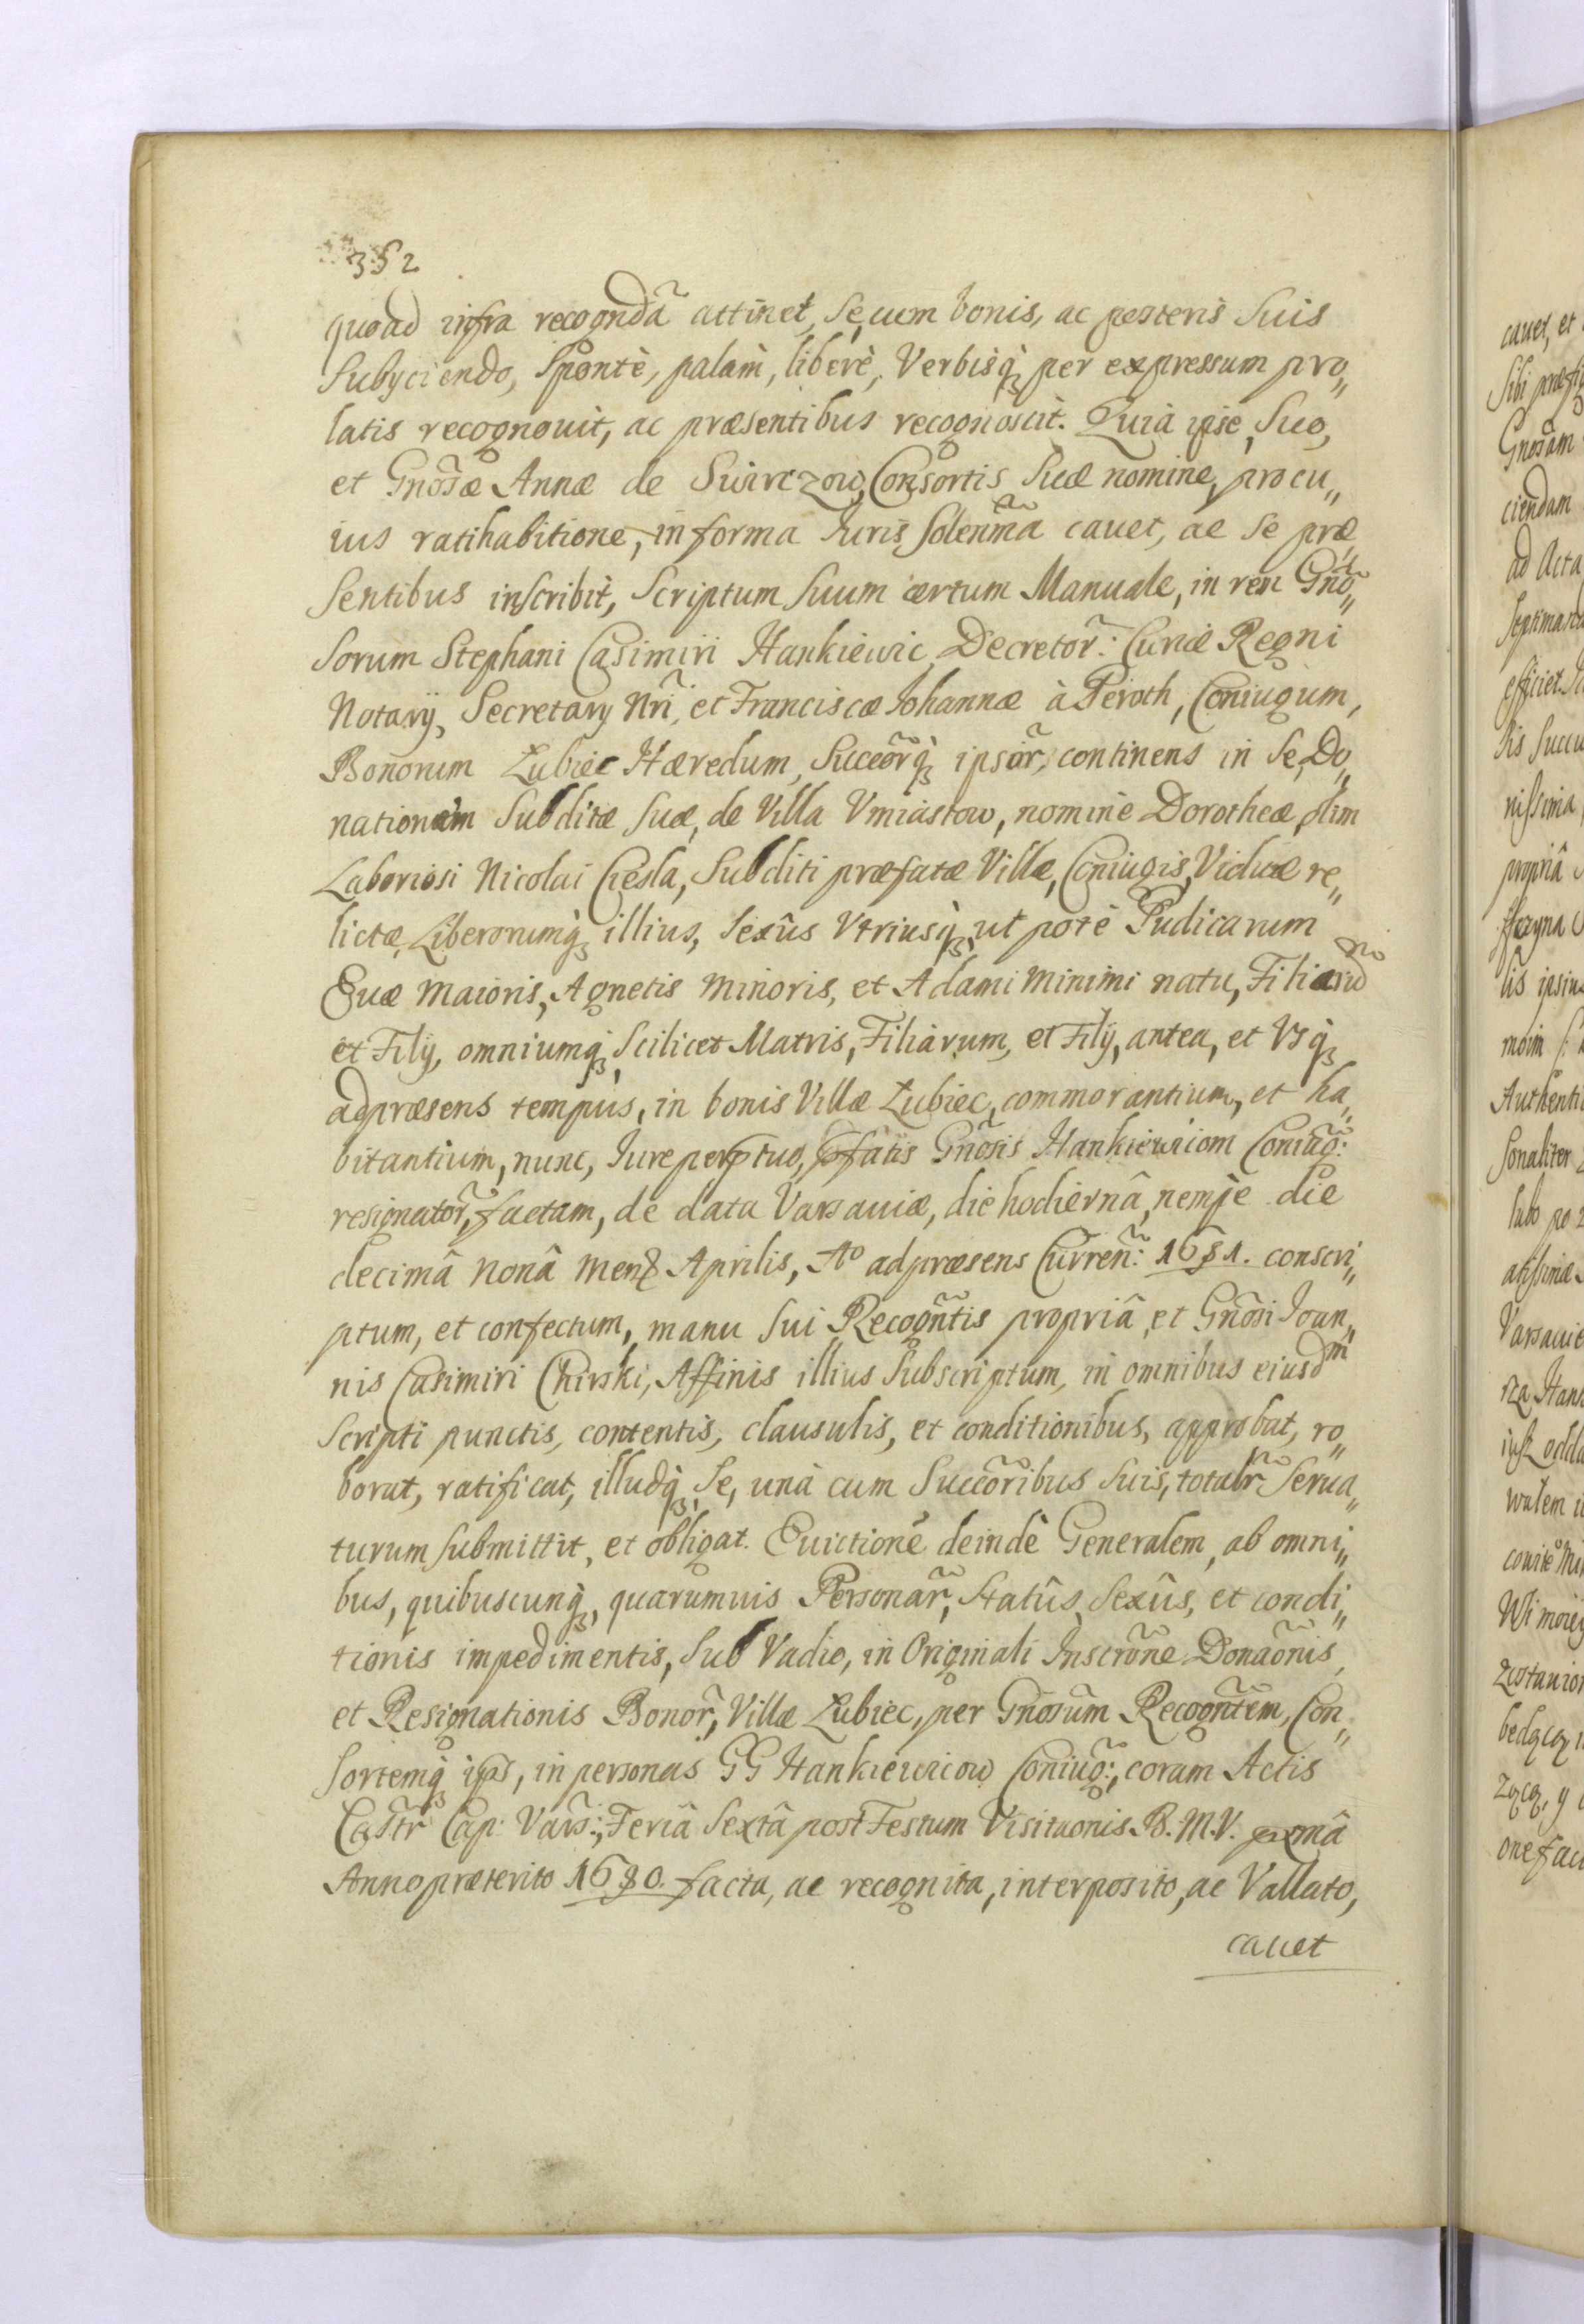 352
quoad infra recogndã attinet, Se, cum bonis, ac posteris Suis
Subyciendo, Spontè, palàm, liberè, Verbisq́ȝ per expressum pro„
latis recognouit, ac præsentibus recognoscit. Quià ipse, Suo,
et Gnõsæ Annæ de Swirczow, Consortis Suæ nomine, pro cu„
ius ratihabitione, in forma Iuris Solenñma cauet, ac Se præ„
Sentibus inscribit, Scriptum Suum certum Manuale, in rem Gnõ„
Sorum Stephani Casimiri Hankiewic, Decretor̃: Curiæ Regni
Notarÿ, Secretary Nr̃i, et Franciscæ Iohannæ à Peroth, Coniugum,
Bonorum Łubiec Hæredum, Succõrq́ȝ ipsor̃, continens in Se, Do„
nationem Subditæ Suæ, de Villa Vmiastow, nominè Dorotheæ, olim
Laboriosi Nicolai Ciesla, Subditi præfatæ Villæ, Coniugis, Viduæ re„
lictæ, Liberorumq́ȝ illius, Sexûs Vtriusq́ȝ, ut potè Pudicarum
Euæ Maioris, Agnetis Minoris, et Adami Minimi natu, Filiarũ
et Filÿ, omniumq́ȝ Scilicet Matris, Filiarum, et Filÿ, antea, et Vsq́ȝ
adpræsens tempus, in bonis Villæ Łubiec, commorantium, et ha„
bitantium, nunc, Iure perptuo, p̱fatis Gnõsis Hankiewiciom Coniug̃:
resignator̃, factam, de data Varsauiæ, die hodiernâ, nempe die
decimâ nonâ Menȝ Aprilis, Ao adpræsens Curreñ: 1681. conscri„
ptum, et confectum, manu Sui Recogñtis propriâ, et Gnõsi Ioan„
nis Casimiri Chirski, Affinis illius Subscriptum, in omnibus eiusdm
Scripti punctis, contentis, clausulis, et conditionibus, approbat, ro„
borat, ratificat, illudq́ȝ, Se, unà cum Succõribus Suis, totalr̃ Serua„
turum submittit, et obligat. Euictionẽ deindè Generalem, ab omni„
bus, quibuscunq́ȝ, quarumuis Personar̃, Statûs, Sexûs, et condi„
tionis impedimentis, Sub Vadio, in Originali Inscrõne Donaõnis,
et Resignationis Bonor̃, Villæ Łubiec, per Gnõsum Recogñtem, Con„
Sortemq́ȝ ips, in personas GG Hankiewicow Coniug̃:, coram Actis
Castr̃ Cap: Vars̃:, Feriâ Sextâ post Festum Visitaonis B.M.V. pxmâ
Anno præterito 1680. facta, ac recognita, interposito, ac Vallato,
cauet